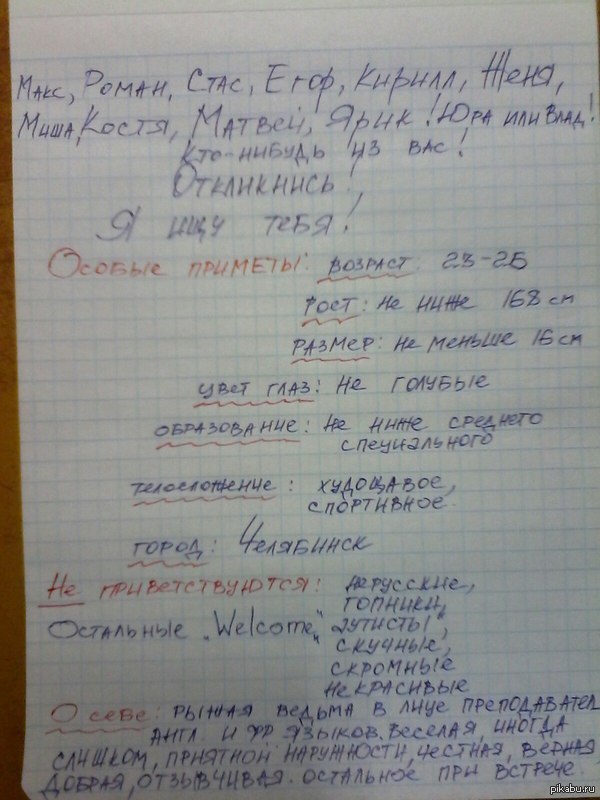 Макс, Роман, Стас, Егор, Кирилл, Женя,
Миша, Костя, Матвей, Ярик! Юра или Влад!
Кто-нибудь из вас!
Откликнись!
Я ищу тебя!
Особые приметы: возраст: 23-26
рост: не ниже 168 см
размер: не меньше 16 см
цвет глаз: не голубые
образование: не ниже среднего
специального
телосложение: худощавое,
спортивное
город: Челябинск
Не приветствуются: нерусские,
гопники,
Остальные „Welcome" "аутисты",
скучные,
скромные
некрасивые
О себе: рыжая ведьма в лице преподавател
англ. и фр языков. Веселая, иногда
слишком, приятной наружности, честная, верная,
добрая, отзывчивая. Остальное при встрече.
pikabu.ru